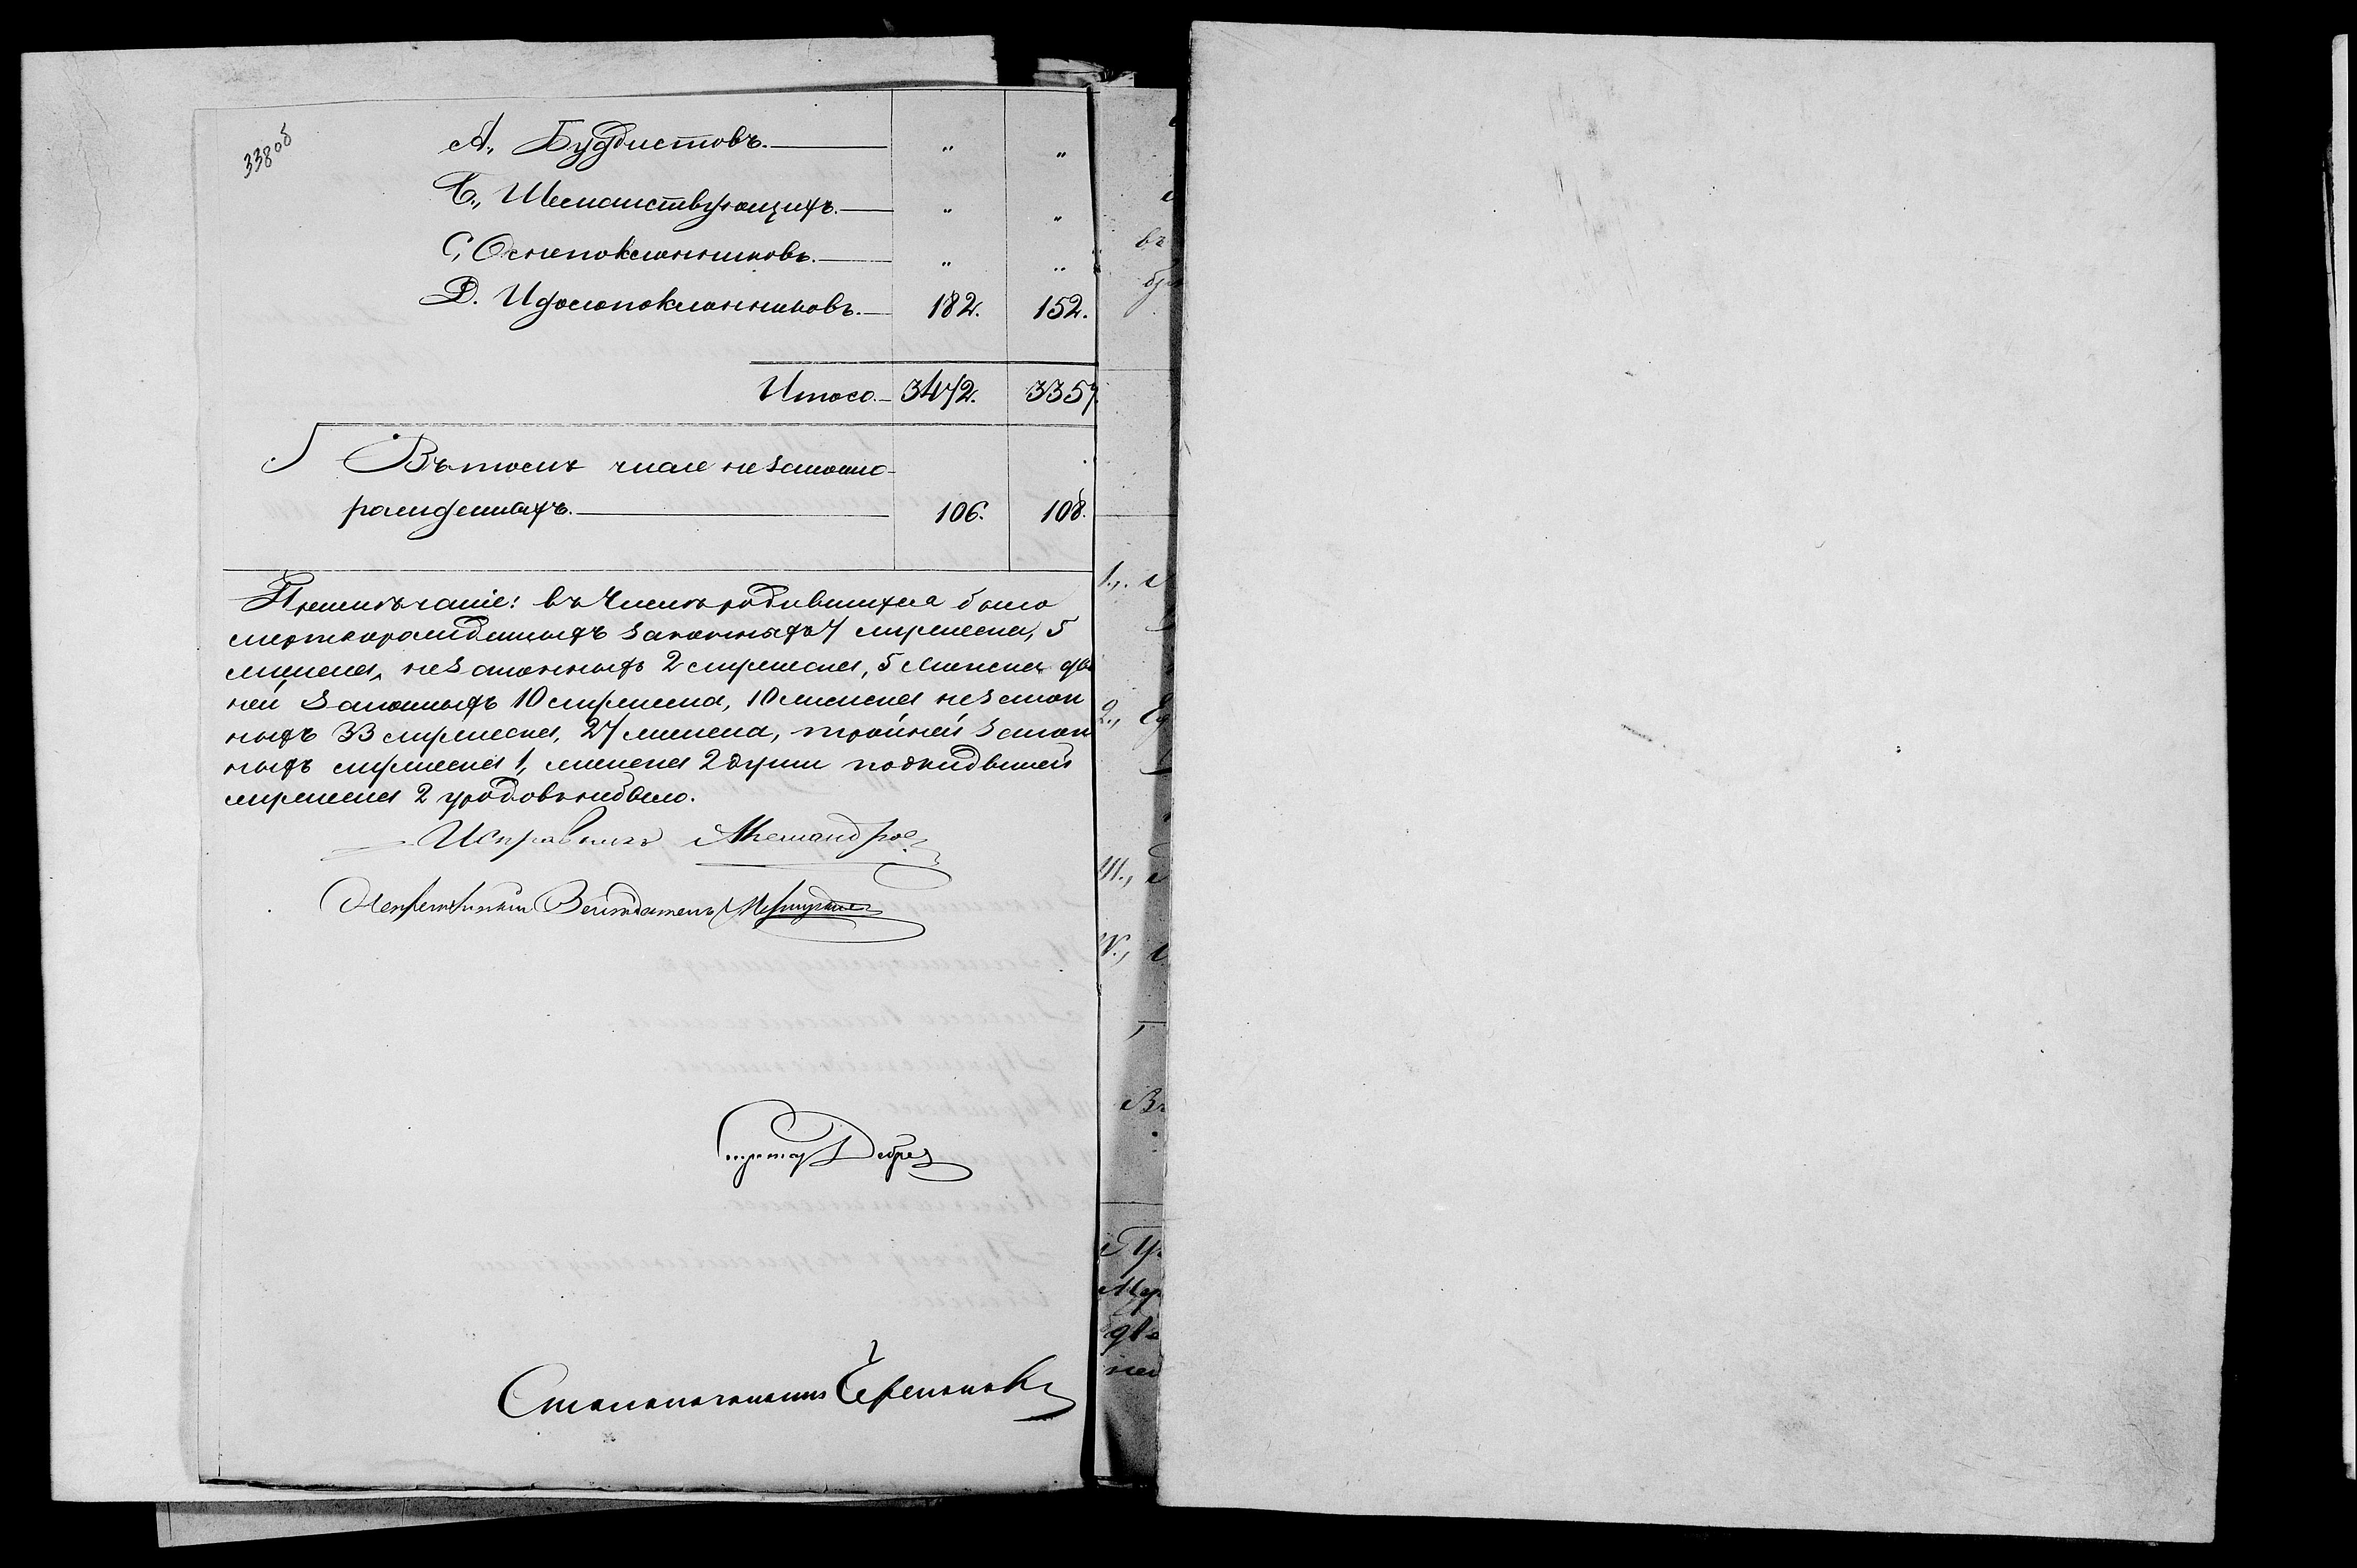 338об
А., Буддистовъ. " "
Б., Шеманствующихъ. " "
С, Огнепоклонниковъ. " "
Д. Идолопоклонниковъ. 182. 152.
Итого. 3472. 3357.
Въ томъ числе незаконно-
рожденныхъ. 106. 108.
Примѣчаніе: въ Числѣ родившихся было
мертворожденныхъ законныхъ 7 мужеска, 5
женска, незаконныхъ 2 мужеска, 5 женска двой
ней законныхъ 10 мужеска, 10 женска незакон
ныхъ 33 мужеска, 27 женска, тройней закон
ныхъ мужеска 1, женска 2 души подкидышей
мужеска 2 уродовъ небыло.
Исправникъ
Секретарь
Столоначальникъ
1.,
2.,
III.,
IV.,